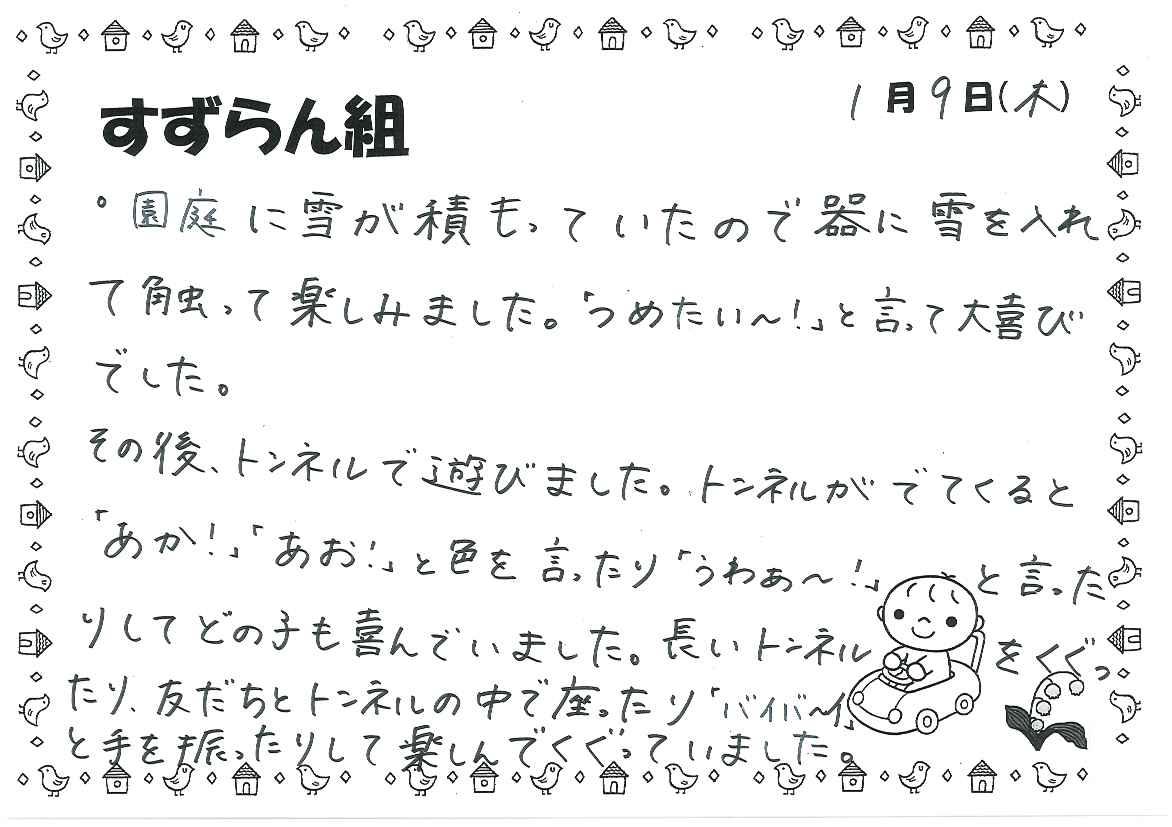 すずらん組
1月9日(木)
・園庭に雪が積もっていたので器に雪を入れ
て触って楽しみました。「つめたい〜!」と言って大喜び
でした。
その後、トンネルで遊びました。トンネルがでてくると
「あか!」「あお!」と色を言ったり「うわぁ〜!」と言った
りしてどの子も喜んでいました。長いトンネルをくぐっ
たり、友だちとトンネルの中で座ったり「バイバ〜イ」
と手を振ったりして楽しんでくぐっていました。